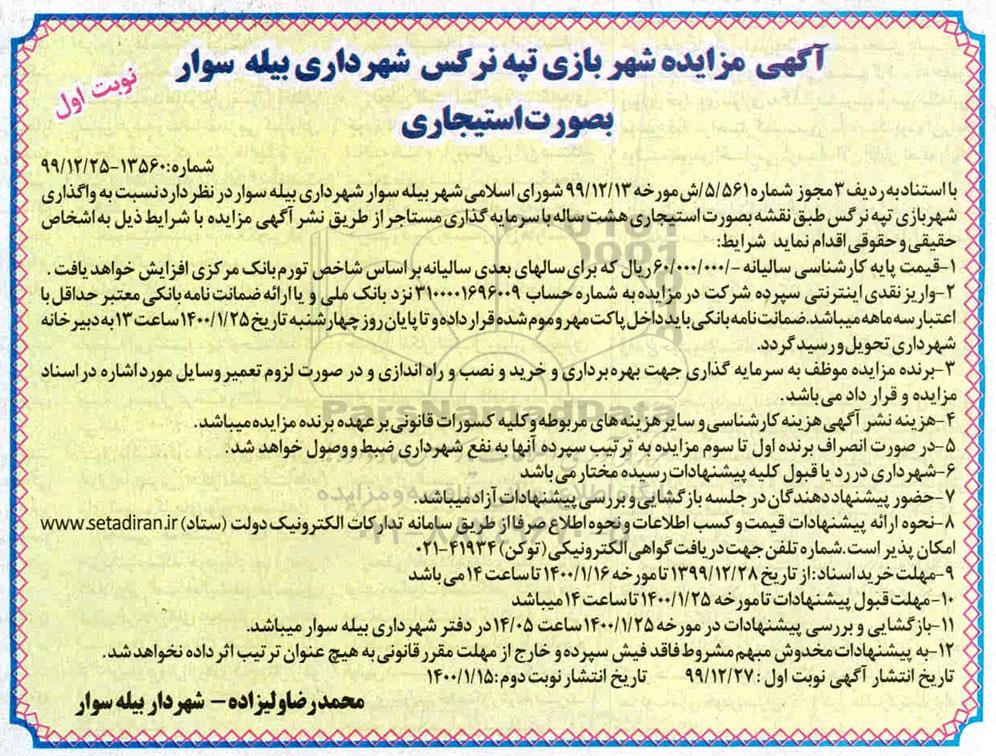 آگهی مزایده شهر بازی تپه نرگس شهرداری بیله سوار
بصورت استیجاری
نوبت اول
شماره:۱۳۵۶۰-۹۹/۱۲/۲۵
با استناد به ردیف ۳ مجوز شماره ۵/۵۶۱/ش مورخه ۹۹/۱۲/۱۳ شورای اسلامی شهر بیله سوار شهرداری بیله سوار در نظر دارد نسبت به واگذاری
شهربازی تپه نرگس طبق نقشه بصورت استیجاری هشت ساله با سرمایه گذاری مستاجر از طریق نشر آگهی مزایده با شرایط ذیل به اشخاص
حقیقی و حقوقی اقدام نماید شرایط:
۱-قیمت پایه کارشناسی سالیانه -/۶۰/۰۰۰/۰۰۰ریال که برای سالهای بعدی سالیانه بر اساس شاخص تورم بانک مرکزی افزایش خواهد یافت .
۲-واریز نقدی اینترنتی سپرده شرکت در مزایده به شماره حساب ۳۱۰۰۰۰۱۶۹۶۰۰۹ نزد بانک ملی و یا ارائه ضمانت نامه بانکی معتبر حداقل با
اعتبار سه ماهه میباشد.ضمانت نامه بانکی باید داخل پاکت مهر و موم شده قرار داده و تا پایان روز چهارشنبه تاریخ ۱۴۰۰/۱/۲۵ ساعت ۱۳ به دبیر خانه
شهرداری تحویل و رسید گردد.
۳-برنده مزایده موظف به سرمایه گذاری جهت بهره برداری و خرید و نصب و راه اندازی و در صورت لزوم تعمیر وسایل مورد اشاره در اسناد
مزایده و قرار داد می باشد.
۴-هزینه نشر آگهی هزینه کارشناسی و سایر هزینه های مربوطه و کلیه کسورات قانونی بر عهده برنده مزایده میباشد.
۵-در صورت انصراف برنده اول تا سوم مزایده به ترتیب سپرده آنها به نفع شهرداری ضبط و وصول خواهد شد.
۶-شهرداری در رد یا قبول کلیه پیشنهادات رسیده مختار می باشد
۷-حضور پیشنهاد دهندگان در جلسه بازگشایی و بررسی پیشنهادات آزاد میباشد.
۸-نحوه ارائه پیشنهادات قیمت و کسب اطلاعات و نحوه اطلاع صرفا از طریق سامانه تدارکات الکترونیک دولت (ستاد) www.setadiran.ir
امکان پذیر است.شماره تلفن جهت دریافت گواهی الکترونیکی (توکن) ۴۱۹۳۴-۰۲۱
۹-مهلت خرید اسناد:از تاریخ ۱۳۹۹/۱۲/۲۸ تا مورخه ۱۴۰۰/۱/۱۶ تا ساعت ۱۴ می باشد
۱۰-مهلت قبول پیشنهادات تا مورخه ۱۴۰۰/۱/۲۵ تا ساعت ۱۴ میباشد
۱۱-بازگشایی و بررسی پیشنهادات در مورخه ۱۴۰۰/۱/۲۵ساعت ۱۴/۰۵در دفتر شهرداری بیله سوار میباشد.
۱۲-به پیشنهادات مخدوش مبهم مشروط فاقد فیش سپرده و خارج از مهلت مقرر قانونی به هیچ عنوان ترتیب اثر داده نخواهد شد.
تاریخ انتشار آگهی نوبت اول : ۹۹/۱۲/۲۷ تاریخ انتشار نوبت دوم:۱۴۰۰/۱/۱۵
محمدرضاولیزاده - شهردار بیله سوار
ParsNamadData